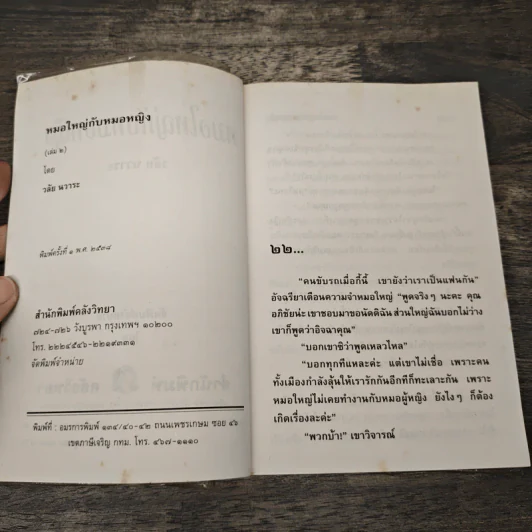 หมอใหญ่กับหมอหญิง
(เล่ม ๒)
โดย
วลัย นวาระ
พิมพ์ครั้งที่ ๑ พ.ศ. ๒๕๓๘
สำนักพิมพ์คลังวิทยา
๗๒๔-๗๒๖ วังบูรพา กรุงเทพฯ ๑๐๒๐๐
โทร. ๒๒๒๔๕๔๖-๒๒๑๙๓๓๑
จัดพิมพ์จำหน่าย
พิมพ์ที่ : อมรการพิมพ์ ๑๓๔/๔๐-๔๒ ถนนเพชรเกษม ซอย ๔๖
เขตภาษีเจริญ กทม. โทร. ๔๖๗-๑๑๑๐
๒๒...
"คนขับรถเมื่อกี้นี้ เขายังว่าเราเป็นแฟนกัน"
อัจฉรียาเตือนความจำหมอใหญ่ "พูดจริงๆ นะคะ คุณ
อภิชัยน่ะเขาชอบมาขอนัดดิฉัน ส่วนใหญ่ฉันบอกไม่ว่าง
เขาก็พูดว่าอิจฉาคุณ"
"บอกเขาซิว่าพูดเหลวไหล"
"บอกทุกทีแหละค่ะ แต่เขาไม่เชื่อ เพราะคน
ทั้งเมืองกำลังลุ้นให้เรารักกันอีกทีก็ทะเลาะกัน เพราะ
หมอใหญ่ไม่เคยทำงานกับหมอผู้หญิง ยังไงๆ ก็ต้อง
เกิดเรื่องละค่ะ"
"พวกบ้า!" เขาวิจารณ์